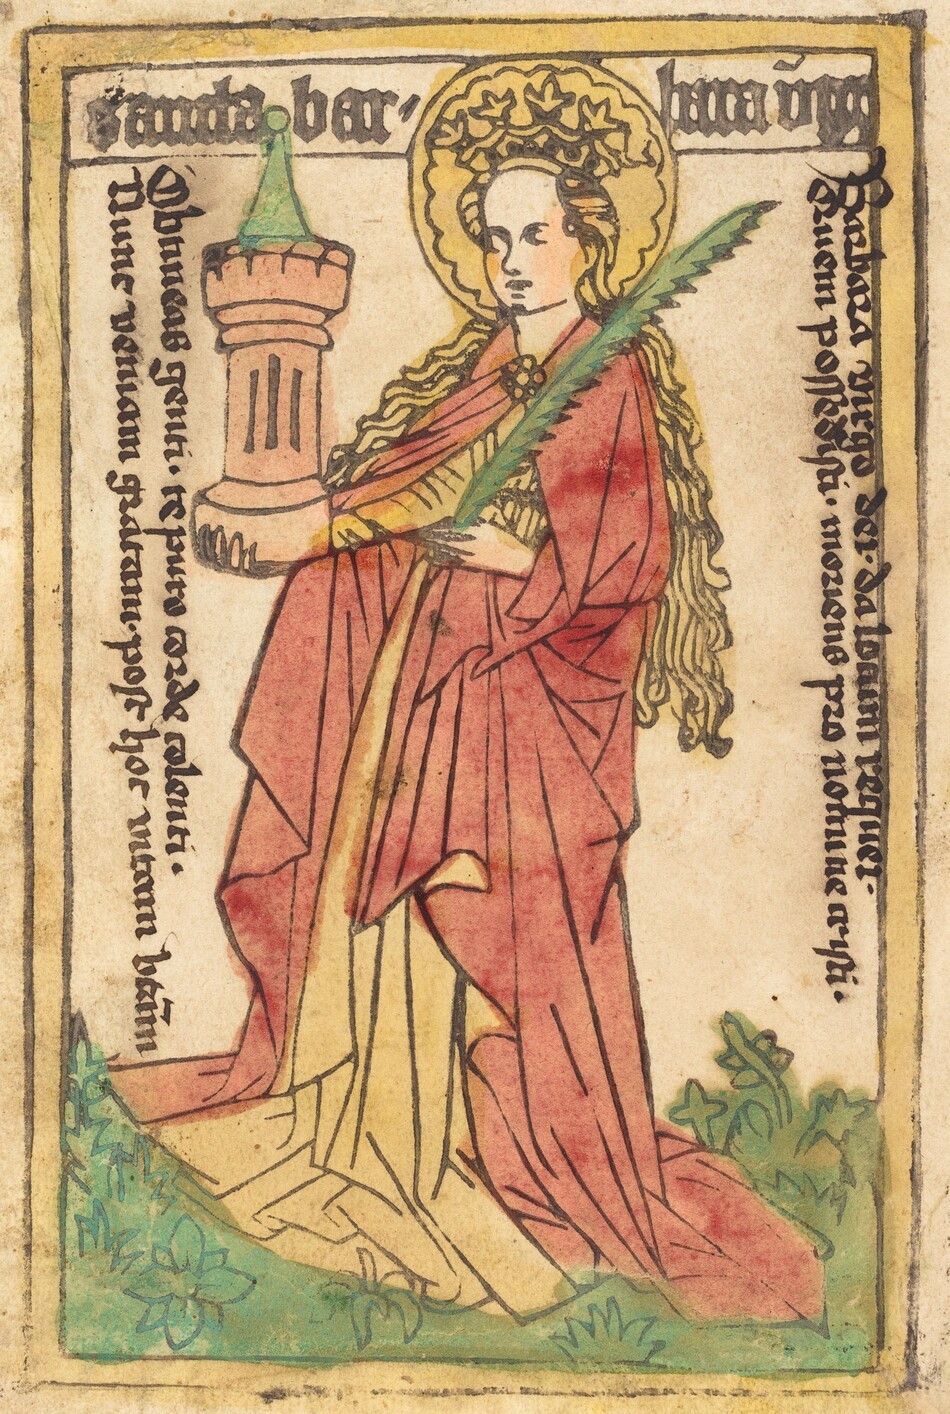 sancta bar
bara v̄gō
Barbara virgo dei · da locum requiei ·
Quem possedisti · moriens pro nomine cristi ·
Obtineas genti · te puro corde colenti ·
Nunc veniam gratam · post hoc vitam beatā